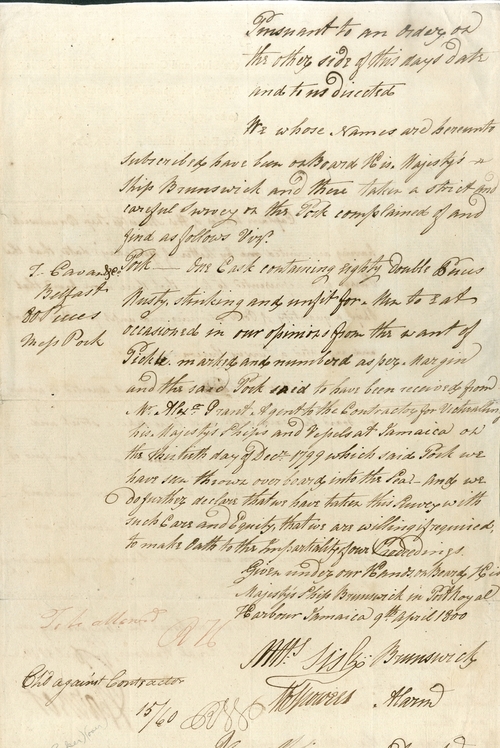 Pursuant to an order on
the other side of this days date
and to us directed
We whose Names are hereunto
subscribed have been on Board His Majesty's
Ship Brunswick and there taken a strict and
careful Survey on the Pork complained of and
find as follows Vizt.
T. Cavan
Belfast
80 Pieces
Mess Pork
Pork — One Cask containing eighty double Pieces
Rusty, stinking and unfit for Men to Eat
occasioned in our opinions from the want of
Pickle. marked and numbered as per Margin
and the said Pork said to have been received from
Mr. Alexr. Grant Agent to the Contractor for Victualling
his Majesty's Ships and Vessels at Jamaica on
the day of Decr. 1799 which said Pork we
have seen thrown overboard into the Sea — and we
do further declare that we have taken this Survey with
such Care and Equity, that we are willing if required,
to make Oath to the Impartiality of our Proceedings.
Given under our Hands on Board His
Majesty's Ship Brunswick in Port Royal
Harbour Jamaica 9th April 1800
To be allowed
Brunswick
Chd against Contractor
Alarm
15/60